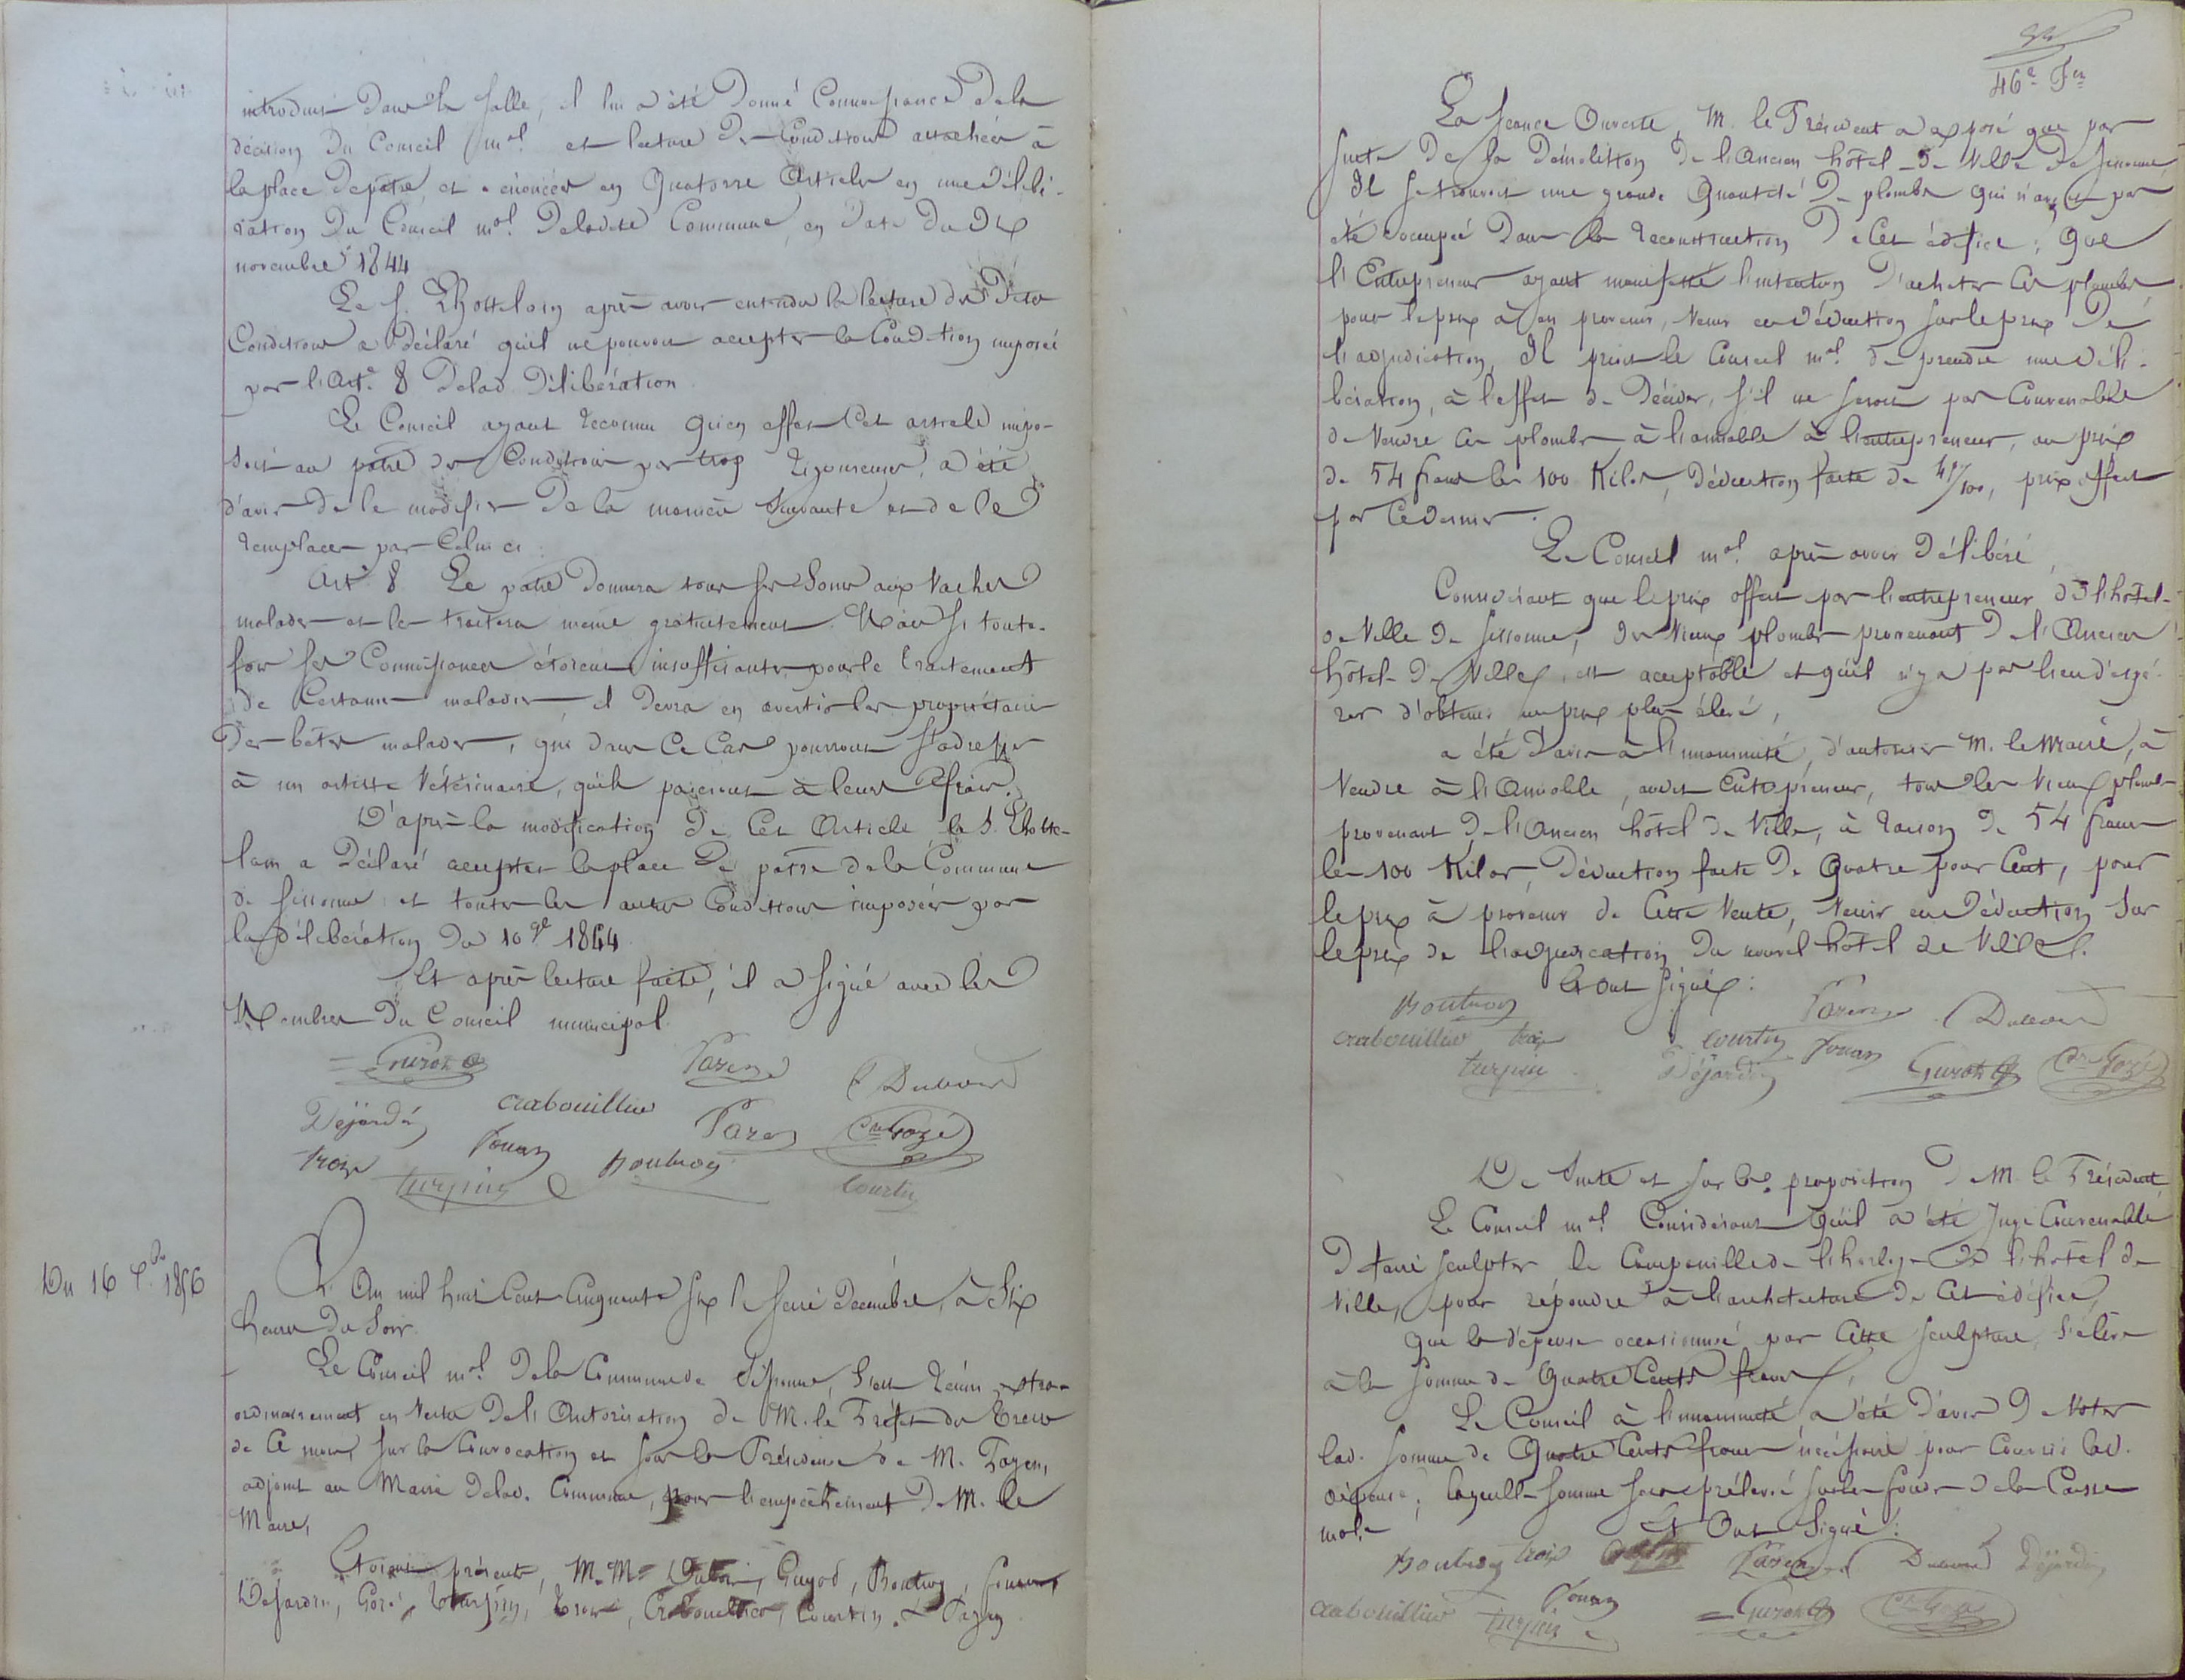 introduit dans la salle, il lui a été donné connaissance de la
décision du Conseil mal et lecture des conditions attachées à
la place de pâtre, et énoncées en quatorze articles en une délibé-
ration du Conseil mal de ladite Commune, en date du dix
novembre 1844
Le S. Lhottelain après avoir entendu la lecture des dites
Conditions a déclaré qu'il ne pouvait accepter la Condition imposée
par l'Art. 8 de lad. délibération
Le Conseil ayant reconnu qu'en effet cet article impo-
sait au pâtre des Conditions par trop rigoureuses, a été
d'avis de le modifier de la manière suivante et de le
remplacer par celui ci :
Art. 8 Le pâtre donnera tous ses soins aux vaches
malades et les traitera même gratuitement. Mais si toute-
fois ses connaissances étaient insuffisantes pour le traitement
de certaines maladies, il devra en avertir les propriétaires
des bêtes malades, qui dans ce cas pourront s'adresser
à un artiste vétérinaire, qu'ils paieront à leurs frais.
D'après la modification de cet article, le S. Lhotte-
lain a déclaré accepter la place de pâtre de la Commune
de Sissonne et toutes les autres conditions imposées par
la délibération du 10 9e 1844
Et après lecture faite, il a signé avec les
Membres du Conseil municipal.
Guyot Payen Dubois
Déjardin Crabouillier Payen Gozé
Froize Fouan Boutroy
Turpin Courtin
Du 16 Xbre 1856
L'An mil huit cent cinquante six le seize décembre, à six
heures du soir
Le Conseil mal de la Commune de Sissonne, s'est réuni extra-
ordinairement en vertu de l'autorisation de M. le Préfet du treize
de ce mois, sur la convocation et sous la Présidence de M. Payen,
adjoint au Maire de lad. Commune, pour l'empêchement de M. le
Maire,
Etaient présents, M.M. Dubois, Guyot, Boutroy, Fouan,
Déjardin, Gozé, Turpin, Croize, Crabouillier, Courtin, & Payen
46e Fet
La séance ouverte, M. le Président a exposé que par
suite de la démolition de l'ancien hôtel de Ville de Sissonne,
Il se trouvait une grande quantité de plombs qui n'avait pas
été occupée dans la reconstruction de cet édifice ; que
l'Entrepreneur ayant manifesté l'intention d'acheter ces plombs
pour le prix à en provenir, venir en déduction sur le prix de
l'adjudication, Il priait le Conseil mal de prendre une déli-
bération, à l'effet de décider, s'il ne serait pas convenable
de vendre ces plombs à l'amiable à l'entrepreneur, au prix
de 54 francs les 100 Kilos, déduction faite de 4/100, prix offert
par ce dernier.
Le Conseil mal après avoir délibéré,
Considérant que le prix offert par l'entrepreneur de l'hôtel-
de Ville de Sissonne, des vieux plombs provenant de l'ancien
hôtel de Ville, est acceptable et qu'il n'y a pas lieu d'espé-
rer d'obtenir un prix plus élevé,
a été d'avis à l'unanimité, d'autoriser M. le Maire, à
Vendre à l'amiable, audit Entrepreneur, tous les vieux plombs
provenant de l'ancien hôtel de Ville, à raison de 54 francs
les 100 Kilos, déduction faite de quatre pour cent, pour
le prix à provenir de cette vente, venir en déduction sur
le prix de l'adjudication du nouvel hôtel de Ville.
Et ont signé :
Boutroy Payen Dubois
Crabouillier Froize Courtin Fouan
Turpin Déjardin Guyot Gozé
De suite et sur la proposition de M. le Président,
Le Conseil mal Considérant qu'il a été jugé convenable
de faire sculpter le Campanille de l'horloge de l'hôtel de
Ville, pour répondre à l'architecture de cet édifice,
que la dépense occasionnée par cette sculpture, s'élève
à la somme de quatre cents francs,
Le Conseil à l'unanimité a été d'avis de voter
lad. somme de quatre cents francs nécessaire pour couvrir lad.
dépense, laquelle somme sera prélevée sur les fonds de la Caisse
male
Et ont signé :
Boutroy Froize Payen Dubois Déjardin
Crabouillier Turpin Fouan Guyot Gozé